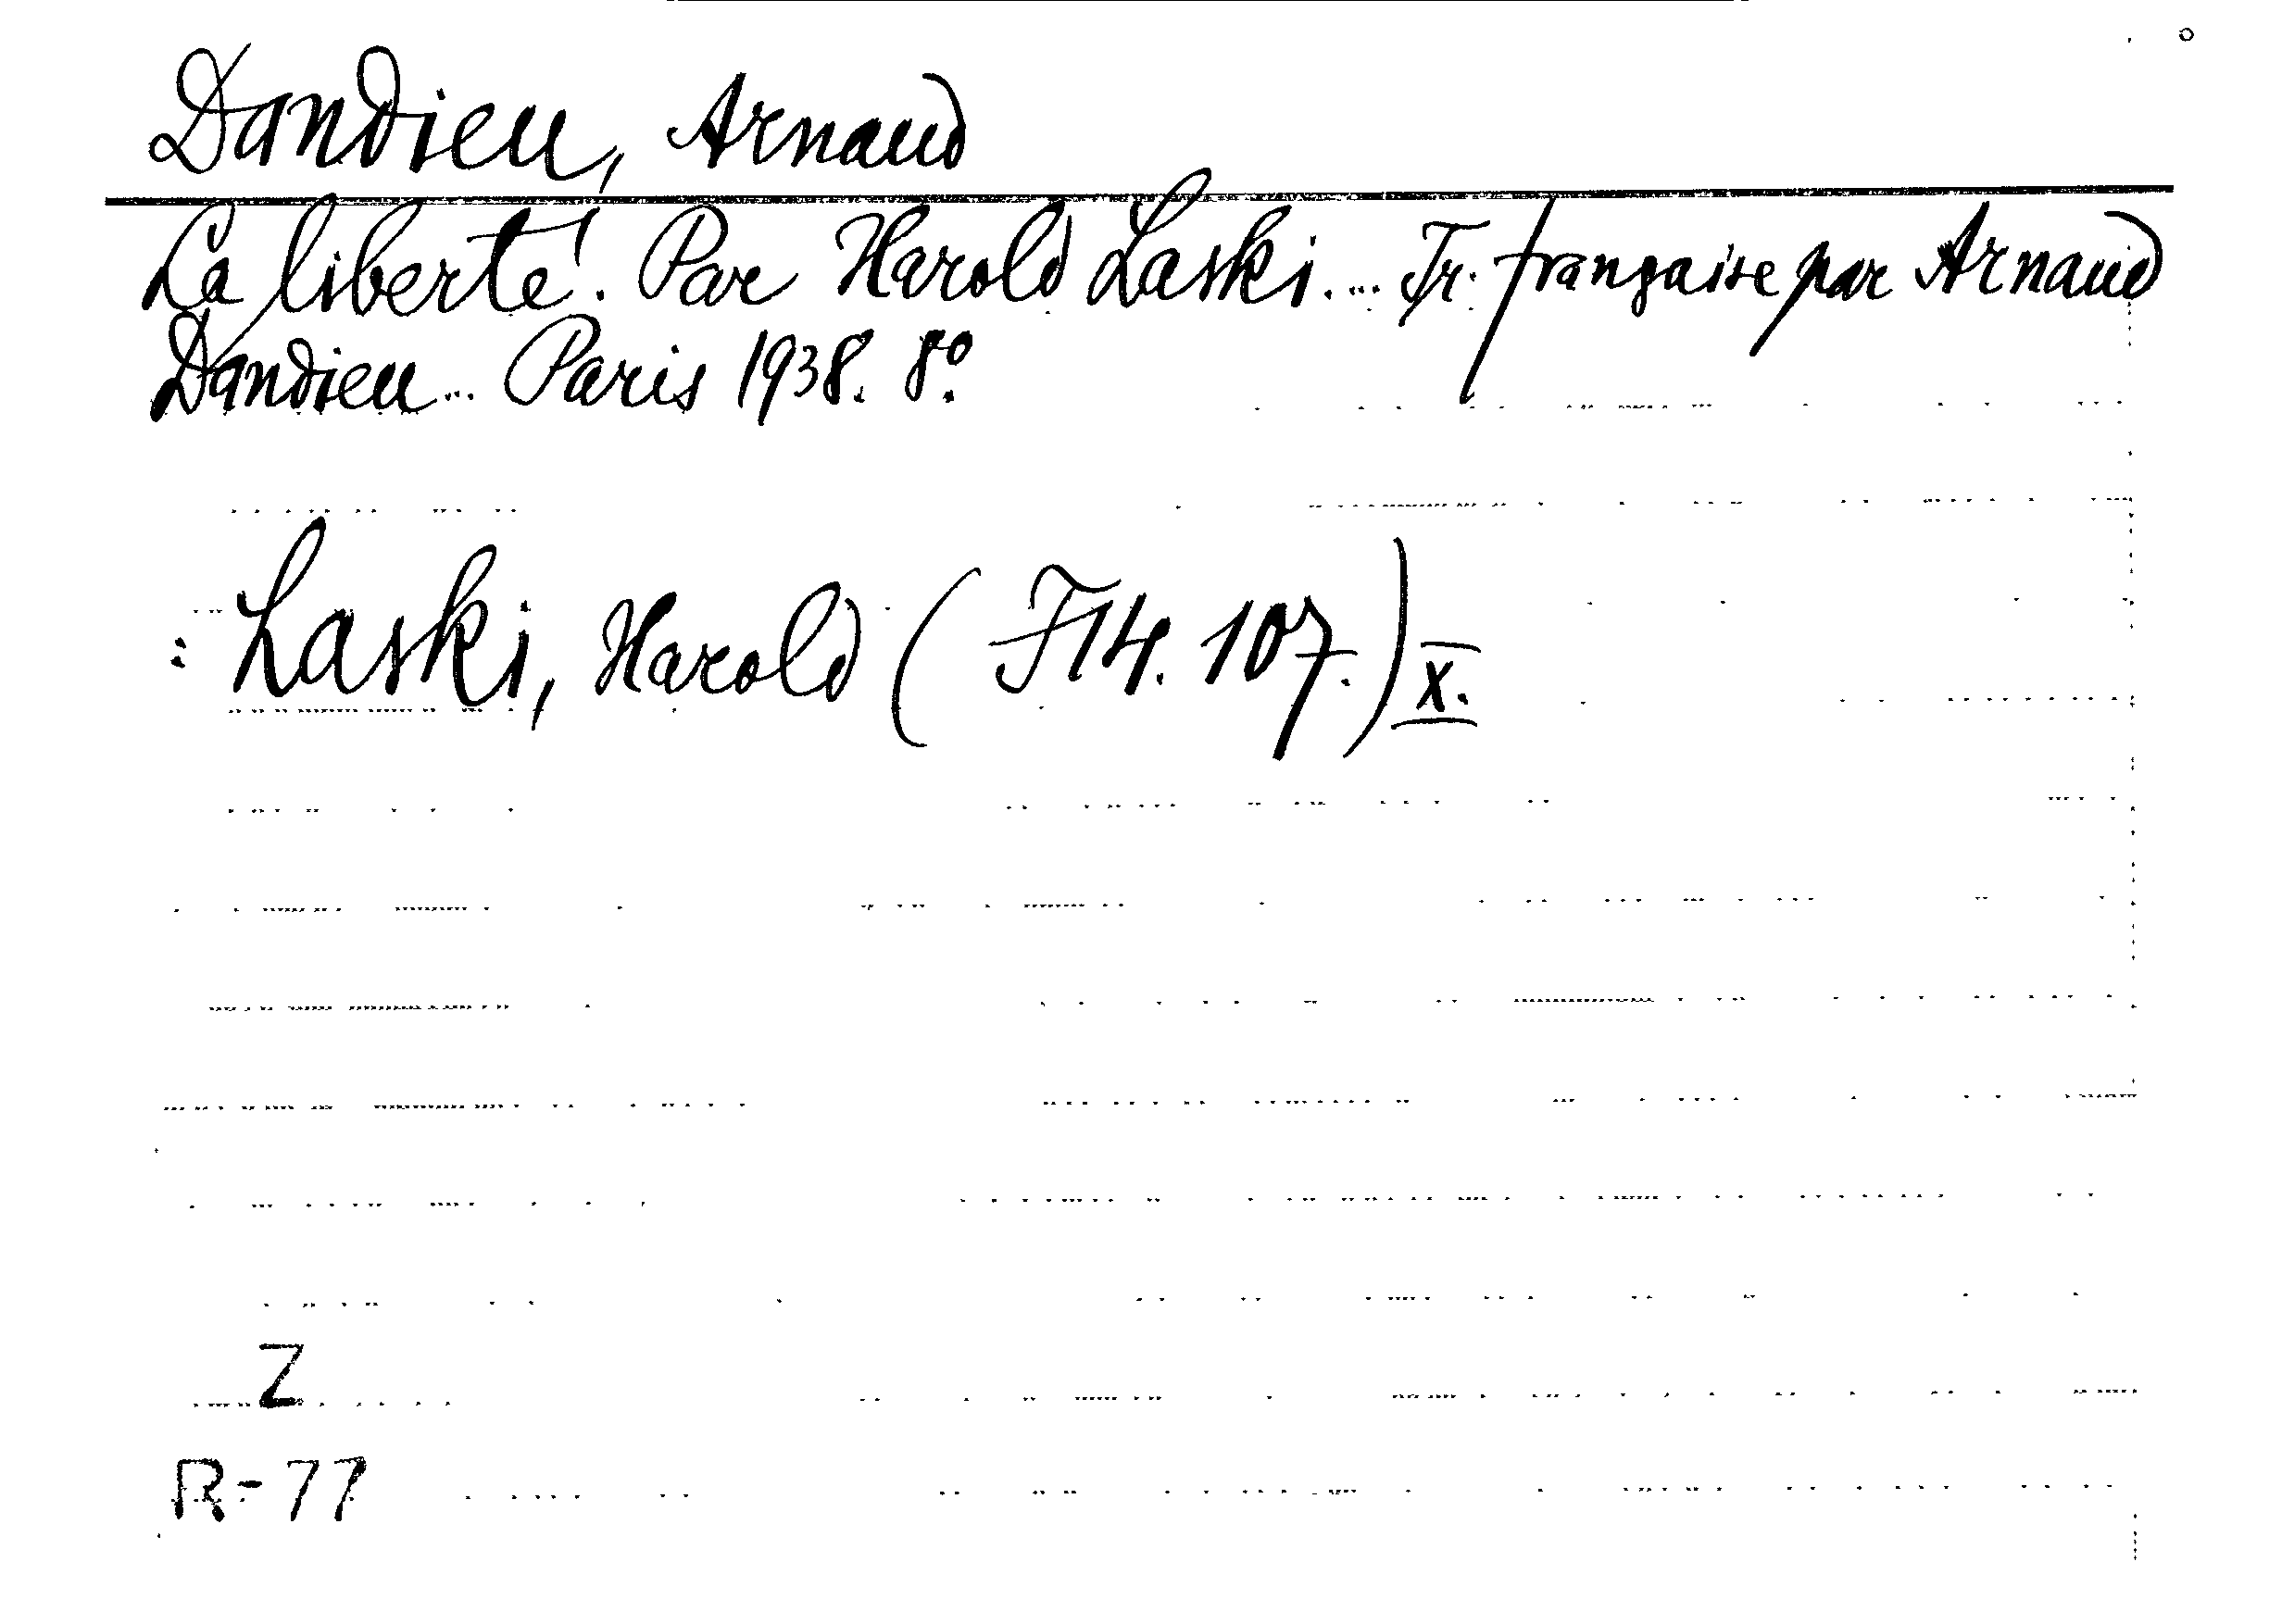 Dandieu, Arnaud
La liberté. Par Harold Laski. ... Tr. française par Arnaud
Dandieu ... Paris 1938. 8º.
: Laski, Harold (F14. 107.) X.
Z
R-77